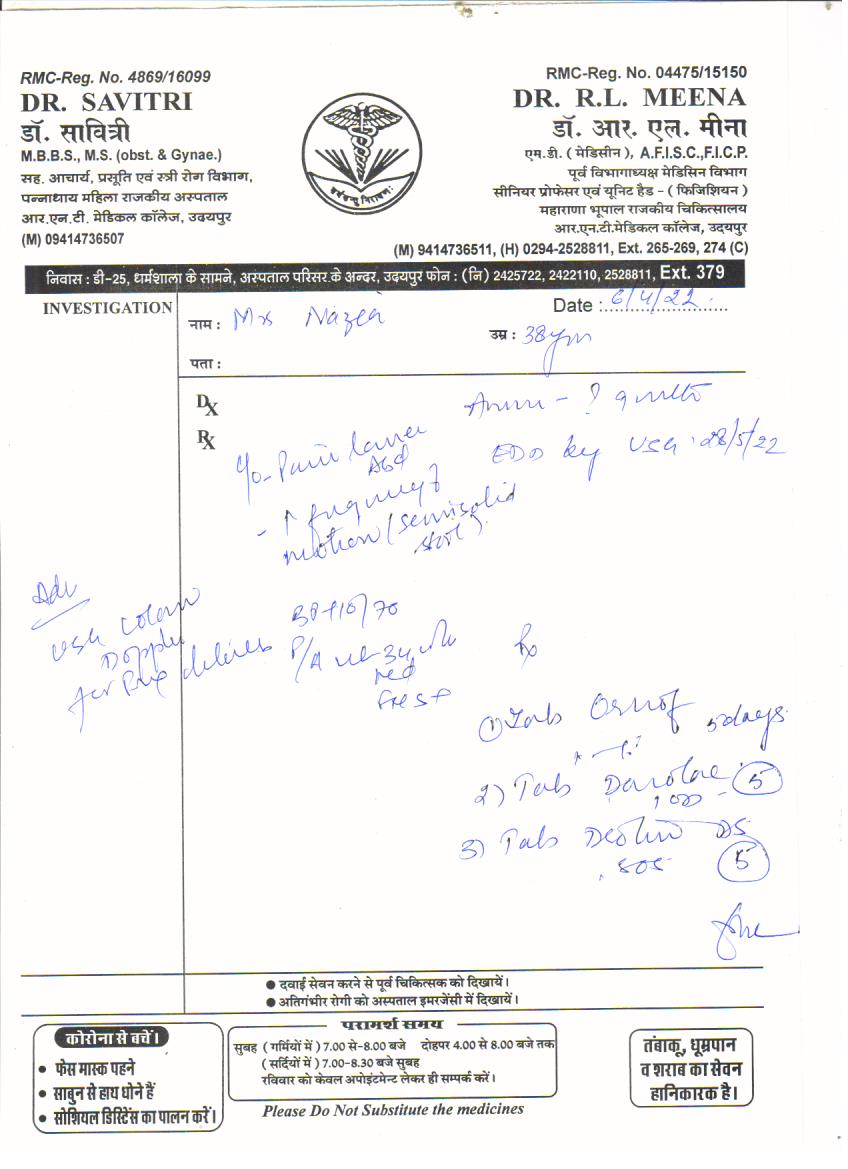 RMC-Reg. No. 4869/16099
DR. SAVITRI
डॉ. सावित्री
M.B.B.S., M.S. (obst. & Gynae.)
सह. आचार्य, प्रसूति एवं स्त्री रोग विभाग,
पन्नाधाय महिला राजकीय अस्पताल
आर.एन.टी. मेडिकल कॉलेज, उदयपुर
(M) 09414736507
सर्वे सन्तु निरामयाः
RMC-Reg. No. 04475/15150
DR. R.L. MEENA
डॉ. आर. एल. मीना
एम.डी. ( मेडिसीन ), A.F.I.S.C.,F.I.C.P.
पूर्व विभागाध्यक्ष मेडिसिन विभाग
सीनियर प्रोफेसर एवं यूनिट हैड - ( फिजिशियन )
महाराणा भूपाल राजकीय चिकित्सालय
आर.एन.टी.मेडिकल कॉलेज, उदयपुर
(M) 9414736511, (H) 0294-2528811, Ext. 265-269, 274 (C)
निवास : डी-25, धर्मशाला के सामने, अस्पताल परिसर के अन्दर, उदयपुर फोन : (नि) 2425722, 2422110, 2528811, Ext. 379
INVESTIGATION
Date : 6/4/22
नाम : Mrs
उम्र : 38
पता :
DX
RX
c/o - Pain lower
Abd
EDD by USG : 28/5/22
- ↑ frequency of
motion (semisolid
stool)
Adv
USG Colour
Doppler
for
BP 110/70
P/A
Rx
1) Tab 5 days
2) Tab 5
3) Tab DS
SOS 5
● दवाई सेवन करने से पूर्व चिकित्सक को दिखायें।
● अतिगंभीर रोगी को अस्पताल इमरजेंसी में दिखायें।
कोरोना से बचें।
• फेस मास्क पहने
• साबुन से हाथ धोने हैं
• सोशियल डिस्टिेंस का पालन करें।
परामर्श समय
सुबह ( गर्मियों में ) 7.00 से-8.00 बजे दोहपर 4.00 से 8.00 बजे तक
( सर्दियों में ) 7.00-8.30 बजे सुबह
रविवार को केवल अपोइंटमेन्ट लेकर ही सम्पर्क करें।
Please Do Not Substitute the medicines
तंबाकू, धूम्रपान
व शराब का सेवन
हानिकारक है।